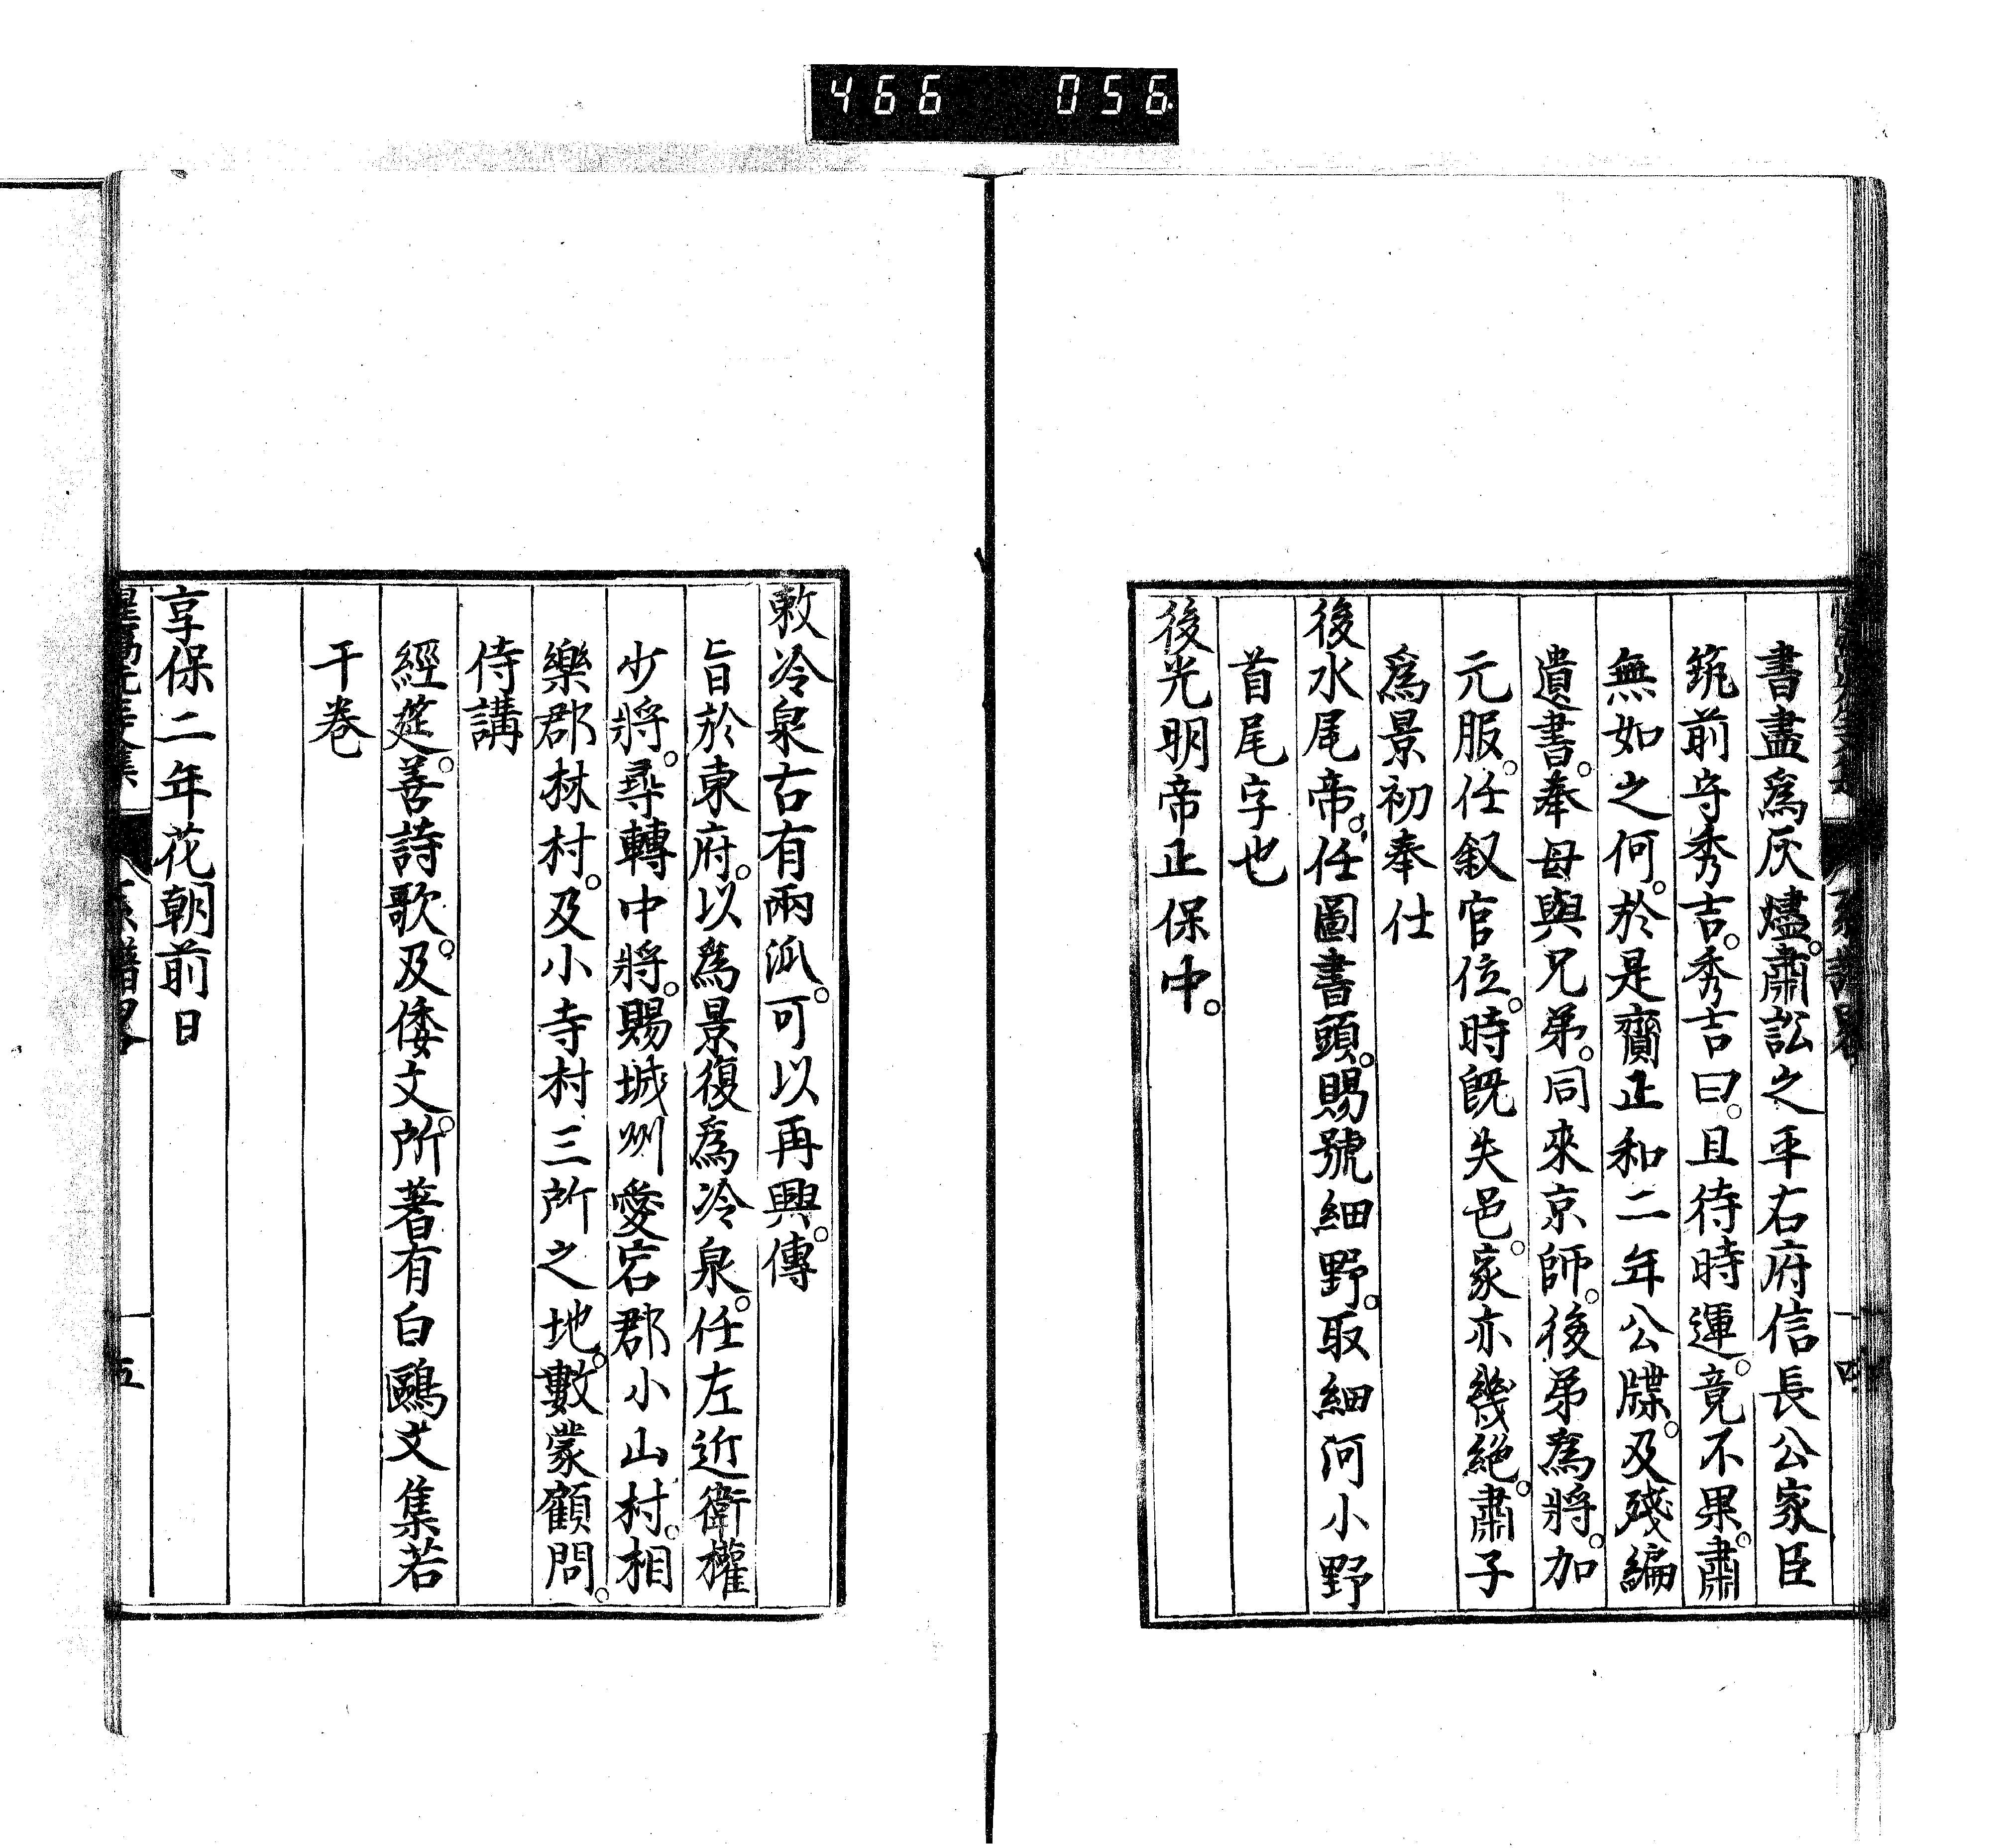 466 056
書盡爲灰燼。肅訟之平右府信長公家臣
筑前守秀吉。秀吉曰。且待時運。竟不果。肅
無如之何。於是齎正和二年公牒。及殘編
遺書。奉母與兄弟。同來京師。後弟爲將。加
元服。任叙官位。時旣失邑。家亦幾絶。肅子
爲景初奉仕
後水尾帝。任圖書頭。賜號細野。取細河小野
首尾字也
後光明帝正保中。
敕冷泉古有兩派。可以再興。傳
旨於東府。以爲景復爲冷泉。任左近衛權
少將。尋轉中將。賜城州愛宕郡小山村。相
樂郡林村。及小寺村三所之地。數蒙顧問。
侍講
經筵。善詩歌。及倭文。所著有白鷗文集若
干卷
享保二年花朝前日
五